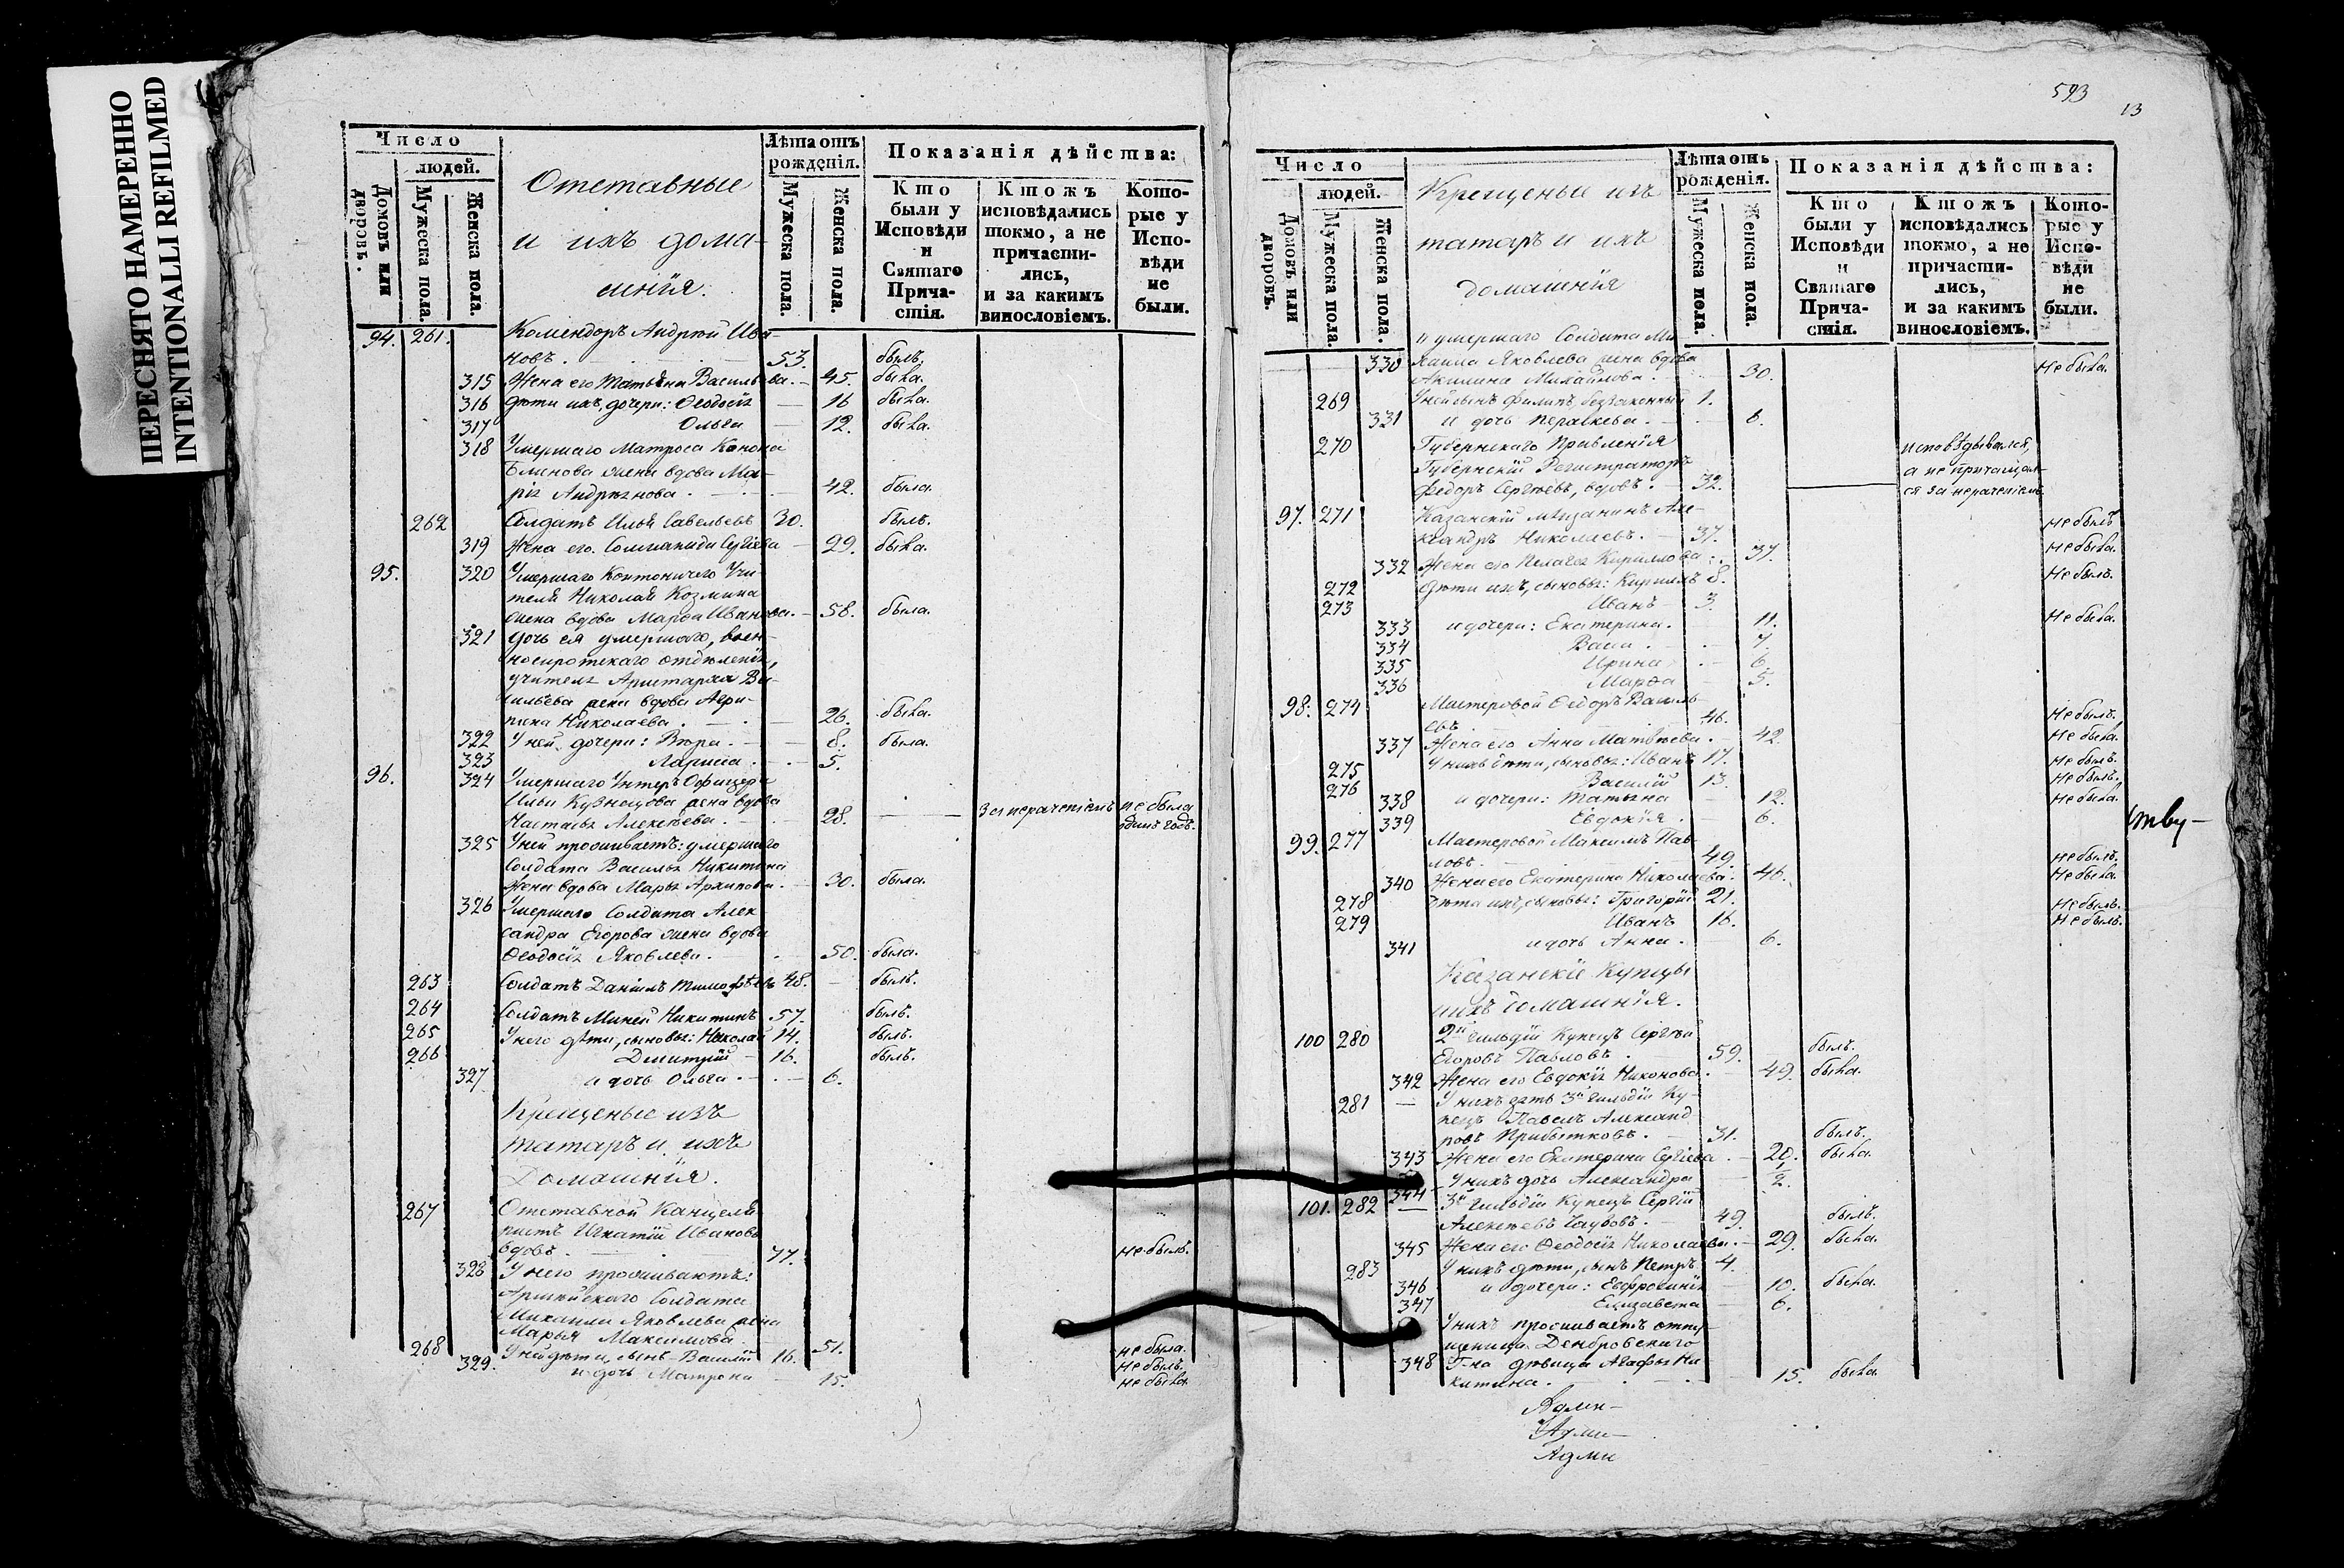 ПЕРЕСНЯТО НАМЕРЕННО
INTENTIONALLI REFILMED
Число
людей.
Домовъ или дворовъ.
Мужеска пола.
Женска пола.
Отставные
и ихъ дома-
шнія.
Лѣта отъ рожденія.
Мужеска пола.
Женска пола.
Показанія дѣйства:
Кто были у Исповѣди и Святаго Прича-стія.
Ктожъ исповѣдались токмо, а не причасти-лись, и за какимъ винословіемъ.
Кото-рые у Испо-вѣди не были.
94. 261. Комендоръ Андрей Ива-
новъ. 53. былъ.
315 Жена его Татьяна Васильева. 45. была.
316 Дѣти ихъ, дочери: Ѳеодосія 16 была.
317 Ольга 12. была.
318 Умершаго Матроса Конона
Блинова жена вдова Ма-
рія Андреянова. 42. была.
262 Солдатъ Илья Савельевъ 30. былъ.
319 Жена его Соломанида Сергіева 29. была.
95. 320 Умершаго Учи-
теля Николая Козмина
жена вдова Марѳа Иванова. 58. была.
321 Дочь ея умершаго, воен-
носиротскаго отдѣленія,
учителя Аристарха Ва-
сильева жена вдова Агри-
пина Николаева. 26. была.
322 У ней дочери: Вѣра. 8. была.
323 Лариса. 5.
96. 324 Умершаго Унтеръ Офицера
Ильи Кузнецова жена вдова
Настасья Алексѣева. 28. За нераченіемъ не была
одинъ годъ.
325 У ней проживаетъ: умершаго
Солдата Василья Никитина
жена вдова Марья Архипова. 30. была.
326 Умершаго Солдата Алек-
сандра Егорова жена вдова
Ѳеодосія Яковлева. 50. была.
263 Солдатъ Даніилъ Тимофѣевъ 48. былъ.
264 Солдатъ Миней Никитинъ 57. былъ.
265 У него дѣти, сыновья: Николай 14. былъ.
266 Димитрій 16. былъ.
327 и дочь Ольга. 6.
Крещеные изъ
татаръ и ихъ
Домашнія.
267 Отставной Канцеля-
ристъ Игнатій Ивановъ
вдовъ. 77. не былъ.
328 У него проживаютъ:
Армейскаго Солдата
Михаила Яковлева жена
Марья Максимова. 51. не была.
268 У ней дѣти, сынъ Василій 16. не былъ.
329. и дочь Матрона 15. не была.
593
13
Число
людей.
Домовъ или дворовъ.
Мужеска пола.
Женска пола.
Крещеные изъ
татаръ и ихъ
домашнія
Лѣта отъ рожденія.
Мужеска пола.
Женска пола.
Показанія дѣйства:
Кто были у Исповѣди и Святаго Прича-стія.
Ктожъ исповѣдались токмо, а не причасти-лись, и за какимъ винословіемъ.
Кото-рые у Испо-вѣди не были.
умершаго Солдата Ми-
330 хаила Яковлева жена вдова
Акилина Михайлова. 30. Не была.
269 У ней сынъ Филипъ, беззаконный 1.
331 и дочь Пераскева. 6.
270 Губернскаго Правленія исповѣдывался,
Губернскій Регистраторъ а не причащал-
Федоръ Сергѣевъ, вдовъ. 32. ся за нераченіемъ.
97. 271 Казанскій мѣщанинъ Але-
ксандръ Николаевъ. 37. Не былъ
332 Жена его Пелагея Кирилова. 37. Не была.
272 Дѣти ихъ, сыновья: Кирилъ 8. Не былъ.
273 Иванъ 3.
333 и дочери: Екатерина. 11. Не была.
334 Васса. 7.
335 Ирина 6.
336 Марѳа 5.
98. 274 Мастеровой Ѳедоръ Василь-
евъ. 46. Не былъ.
337 Жена его Анна Матвѣева. 42. Не была.
275 У нихъ дѣти, сыновья: Иванъ 17. Не былъ.
276 Василій 13. Не былъ.
338 и дочери: Татьяна 12. Не была.
339 Евдокія. 6.
99. 277 Мастеровой Максимъ Пав-
ловъ. 49. Не былъ.
340 Жена его Екатерина Николаева. 46. Не была.
278 Дѣти ихъ, сыновья: Григорій 21. Не былъ.
279 Иванъ 16. Не былъ.
341 и дочь Анна. 6.
Казанскіе Купцы
и ихъ домашнія.
100 280 2й гильдіи Купецъ Сергѣй
Егоровъ Павловъ. 59. былъ.
342 Жена его Евдокія Никонова. 49. была.
281 У нихъ зять 3й гильдіи Ку-
пецъ Павелъ Александ-
ровъ Прибытковъ. 31. былъ.
343 Жена его Екатерина Сергіева. 20. была.
344 У нихъ дочь Александра 1/2.
101. 282 3й гильдіи Купецъ Сергій
Алексѣевъ. 49. былъ.
345 Жена его Ѳеодосія Николаева. 29. была.
283 У нихъ дѣти, сынъ Петръ 4.
346 и дочери: Евфросинія 10. была.
347 Елизавета 6.
У нихъ проживаетъ отпу-
щеница Дембровскаго
348 Г-на дѣвица Агафья Ни-
китина. 15. была.
Адми-
Адми-
Адми